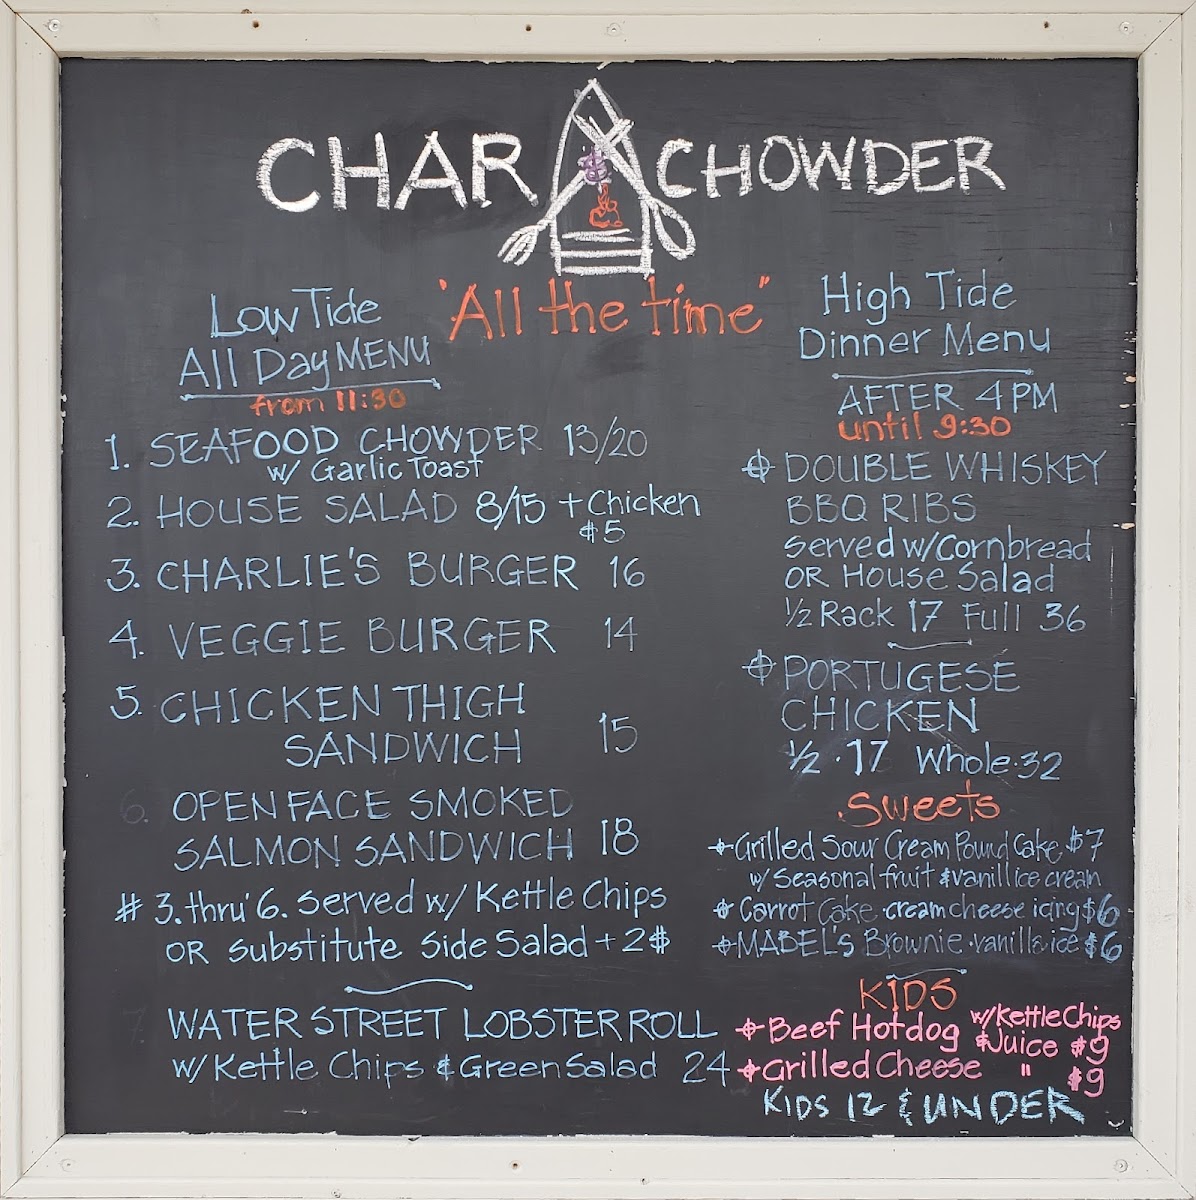 CHAR CHOWDER
"All the time"
Low Tide
All Day MENU
from 11:30
1. SEAFOOD CHOWDER 13/20
w/ Garlic Toast
2. HOUSE SALAD 8/15 + Chicken
$5
3. CHARLIE'S BURGER 16
4. VEGGIE BURGER 14
5. CHICKEN THIGH
SANDWICH 15
6. OPEN FACE SMOKED
SALMON SANDWICH 18
# 3. thru' 6. served w/ Kettle Chips
OR substitute Side Salad + 2$
7. WATER STREET LOBSTER ROLL
w/ Kettle Chips & Green Salad 24
High Tide
Dinner Menu
AFTER 4 PM
until 9:30
DOUBLE WHISKEY
BBQ RIBS
served w/ Cornbread
OR House Salad
½ Rack 17 Full 36
PORTUGESE
CHICKEN
½ · 17 Whole · 32
Sweets
Grilled Sour Cream Pound Cake $7
w/ Seasonal fruit & vanill ice cream
Carrot Cake · cream cheese icing $6
MABEL's Brownie · vanilla ice $6
KIDS
Beef Hotdog w/ Kettle Chips
& Juice $9
Grilled Cheese " $9
KIDS 12 & UNDER